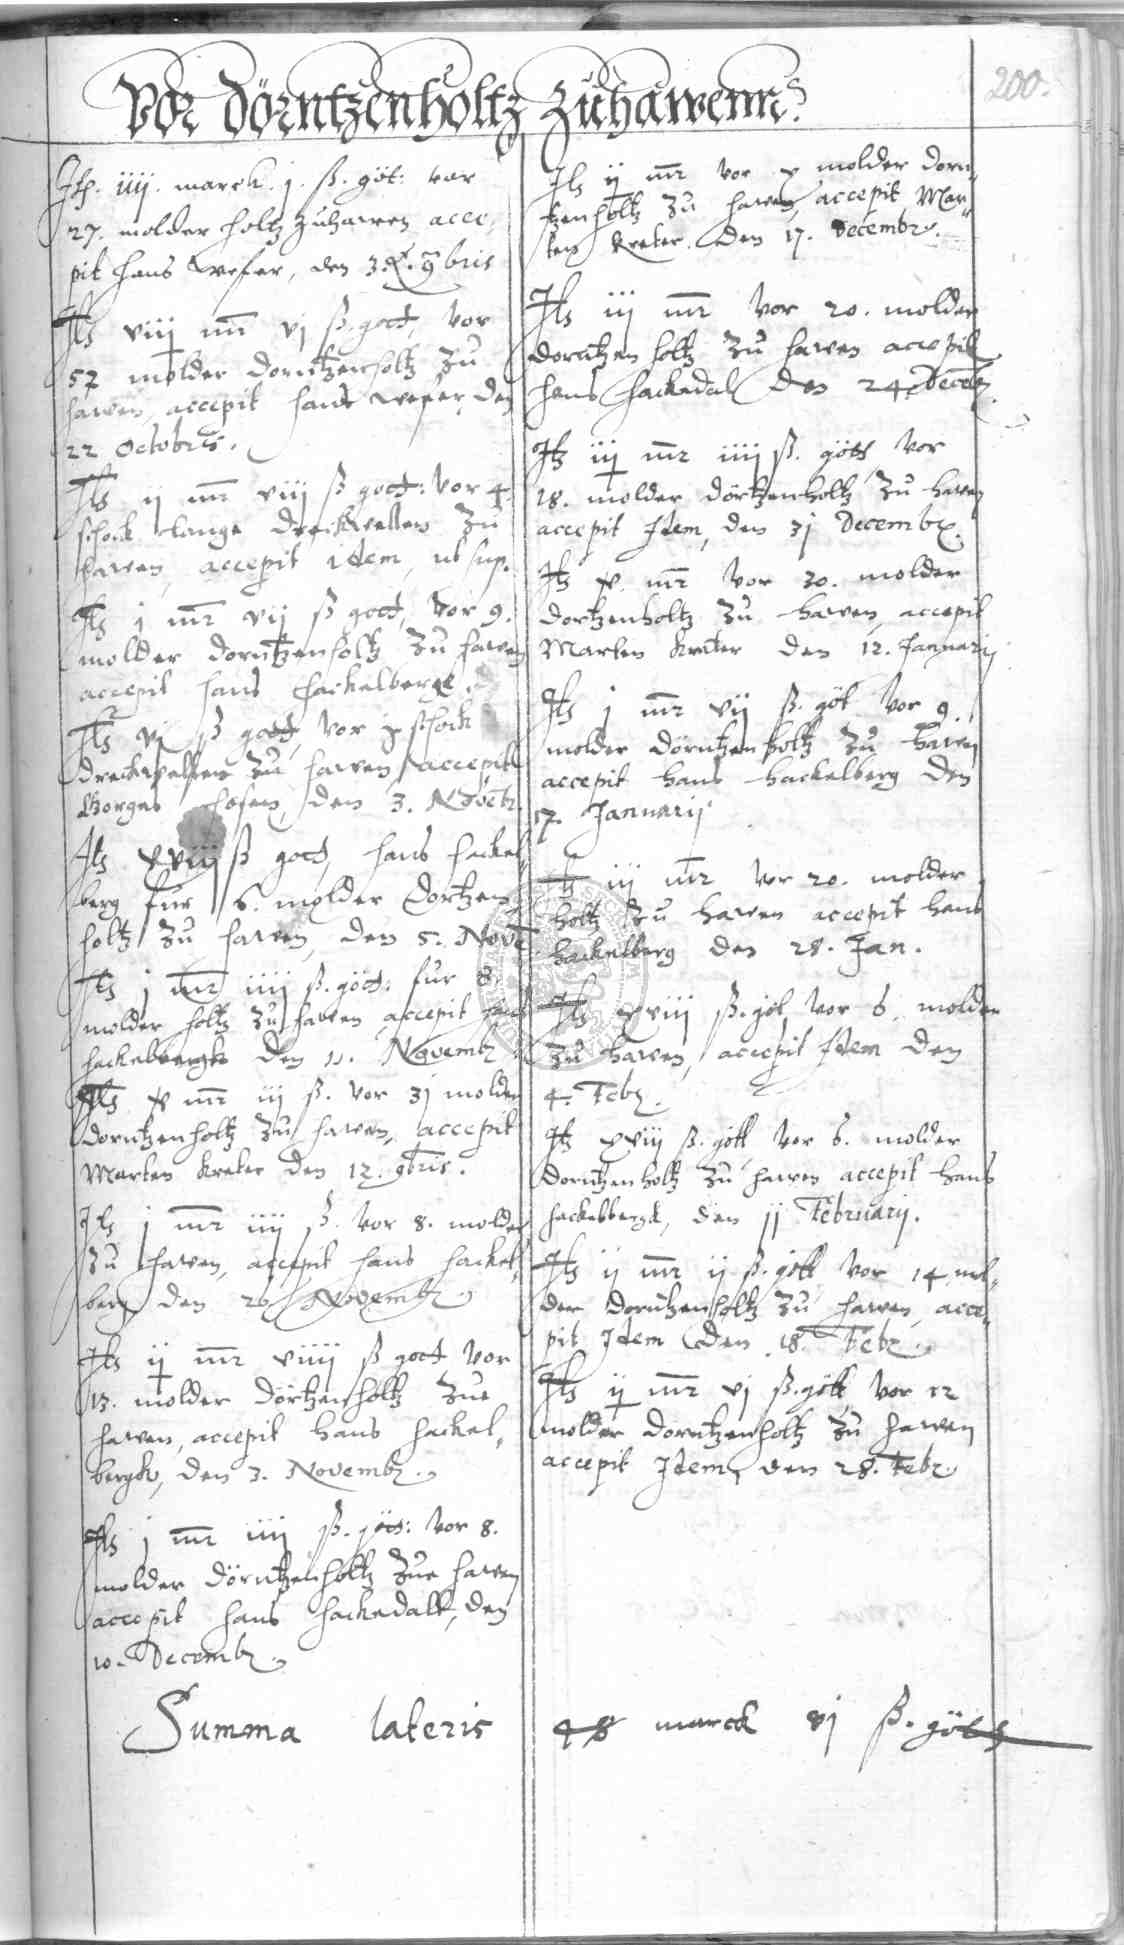 Vor Dörntzenholtz Zuhawenn
200.
Itz. iiij. marck. j. ß. göt: vor
27. molder holtz zuhawen acce,
pit hans Weser, den 9bris
Itz viij mr vj ß. gott, Vor
57 molder dorntzenholtz zu
hawen, accepit hans Weser, den
22 Octobris.
Itz ij mr viij ß gott: Vor 4.
schock lange dreckwellen zu
hawen, accepit idem, ut sup.
Itz j mr vij ß gott, Vor 9.
molder dorntzenholtz zu hawen
accepit hans hackelberge.
Itz vj ß gott, Vor schock
dreckwellen zu hawen accepit
den 3.
Itz xviij ß gott, hans hackel,
berg fur 6. molder dortzen,
holtz zu hawen, den 5. Nove
Itz j mr iiij ß. gött: fur 8.
molder holtz zu hawen accepit hans
hackelbergk den 11. Novemb
Itz v mr iij ß. vor 31 molder
dorntzenholtz zu hawen, accepit
Marten Kreter den 12. 9bris.
Itz j mr iiij ß. vor 8. molder
zu hawen, accepit hans hackel,
berg den 26 Novemb
Itz ij mr viiij ß gott Vor
13. molder dörtzenholtz zue
hawen, accepit hans hackel,
bergk, den 3. Novemb.
Itz j mr iiij ß. göt: Vor 8.
molder dörntzenholtz zue hawen
accepit hans hackedall, den
10. Decemb.
Itz ij mr vor molder dorn,
tzenholtz zu hawen, accepit Mar,
ten Kreter. den 17. Decembr.
Itz iij mr Vor 20. molder
dorntzenholtz zu hawen accepit
hans hackedal den 24 Decemb
Itz iij mr iiij ß. götts Vor
18. molder dörtzenholtz zu hawen
accepit Idem, den 31 Decembr.
Itz v mr Vor 30. molder
dortzenholtz zu hawen, accepit
Marten Kreter den 12. Januarij
Itz j mr vij ß. göt Vor 9.
molder dörntzenholtz zu hawen
accepit hans hackelberg den
17. Januarij
Itz iij mr Vor 20. molder
holtz zu hawen accepit hans
hackelberg den 28. Jan.
Itz xviij ß. göt, Vor 6. molder
zu hawen, accepit Idem den
4. Feb.
Itz xviij ß. gött, Vor 6. molder
dorntzenholtz zu hawen accepit hans
hackelbergk, den 11 Februarij.
Itz ij mr ij ß. gött Vor 14 mol,
der dorntzenholtz zu hawen, acce,
pit Idem den 18. Feb.
Itz ij mr vj ß. gött, Vor 12
molder dorntzenholtz zu hawen
accepit Idem, den 28. Feb.
Summa lateris 48 marck vj ß. götts